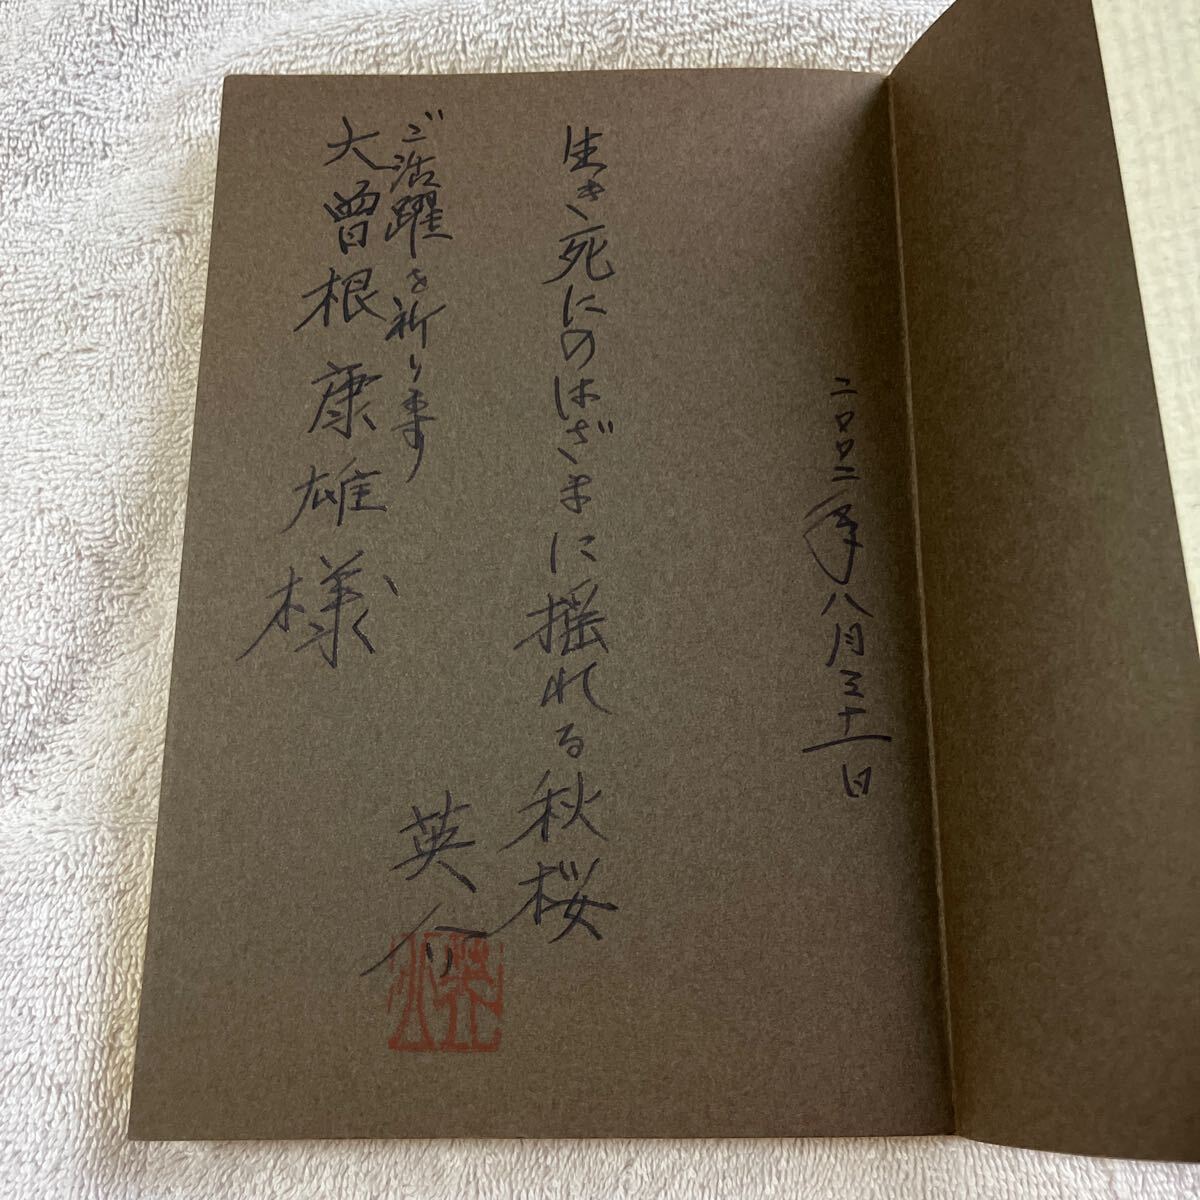 二〇〇二年八月三十一日
生き死にのはざまに揺れる秋桜
英介
ご活躍を祈ります
大曽根康雄様